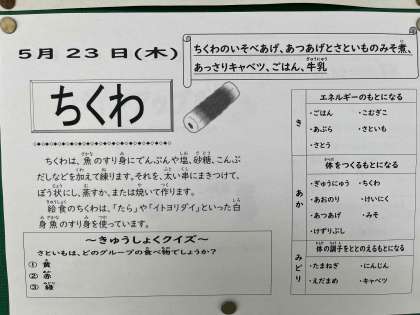 5月23日(木)
ちくわのいそべあげ、あつあげとさといものみそ煮、
あっさりキャベツ、ごはん、牛乳
ちくわ
ちくわは、魚のすり身にでんぷんや塩、砂糖、こんぶ
だしなどを加えて練ります。それを、太い串にまきつけて、
ぼう状にし、蒸すか、または焼いて作ります。
給食のちくわは、「たら」や「イトヨリダイ」といった白
身魚のすり身を使っています。
～きゅうしょくクイズ～
さといもは、どのグループの食べ物でしょうか?
① 黄
② 赤
③ 緑
き
エネルギーのもとになる
・ごはん ・こむぎこ
・あぶら ・さといも
・さとう
あか
体をつくるもとになる
・ぎゅうにゅう ・ちくわ
・あおのり ・けいにく
・あつあげ ・みそ
・けずりぶし
みどり
体の調子をととのえるもとになる
・たまねぎ ・にんじん
・えだまめ ・キャベツ